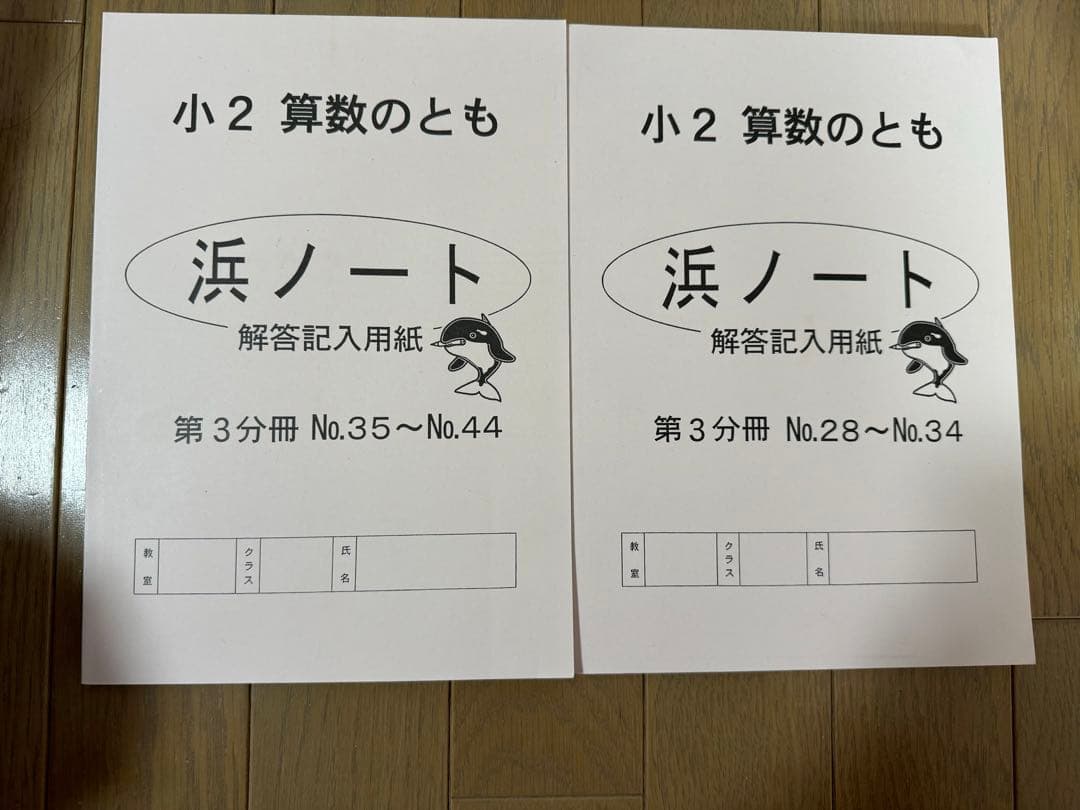 小2 算数のとも
浜ノート
解答記入用紙
第3分冊 No.35〜No.44
教室 クラス 氏名
小2 算数のとも
浜ノート
解答記入用紙
第3分冊 No.28〜No.34
教室 クラス 氏名